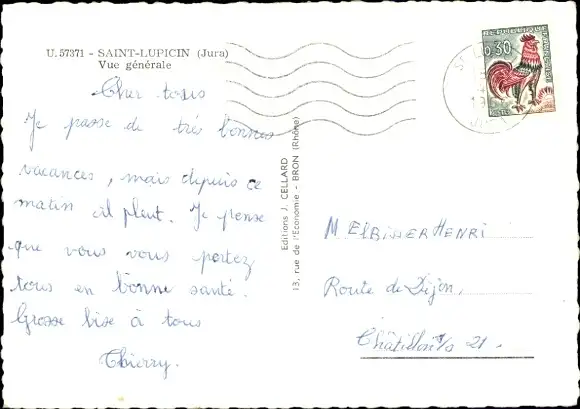 U. 57371 - SAINT-LUPICIN (Jura)
Vue générale
Cher tous
Je passe de très bonnes
vacances, mais depuis ce
matin il pleut. Je pense
que vous vous portez
tous en bonne santé.
Grosse bise à tous
Thierry.
Editions J. CELLARD
13, rue de l'Economie - BRON (Rhône)
0,30
POSTES
M ELBINGER HENRI
Route de Dijon,
Châtillon s/s 21.